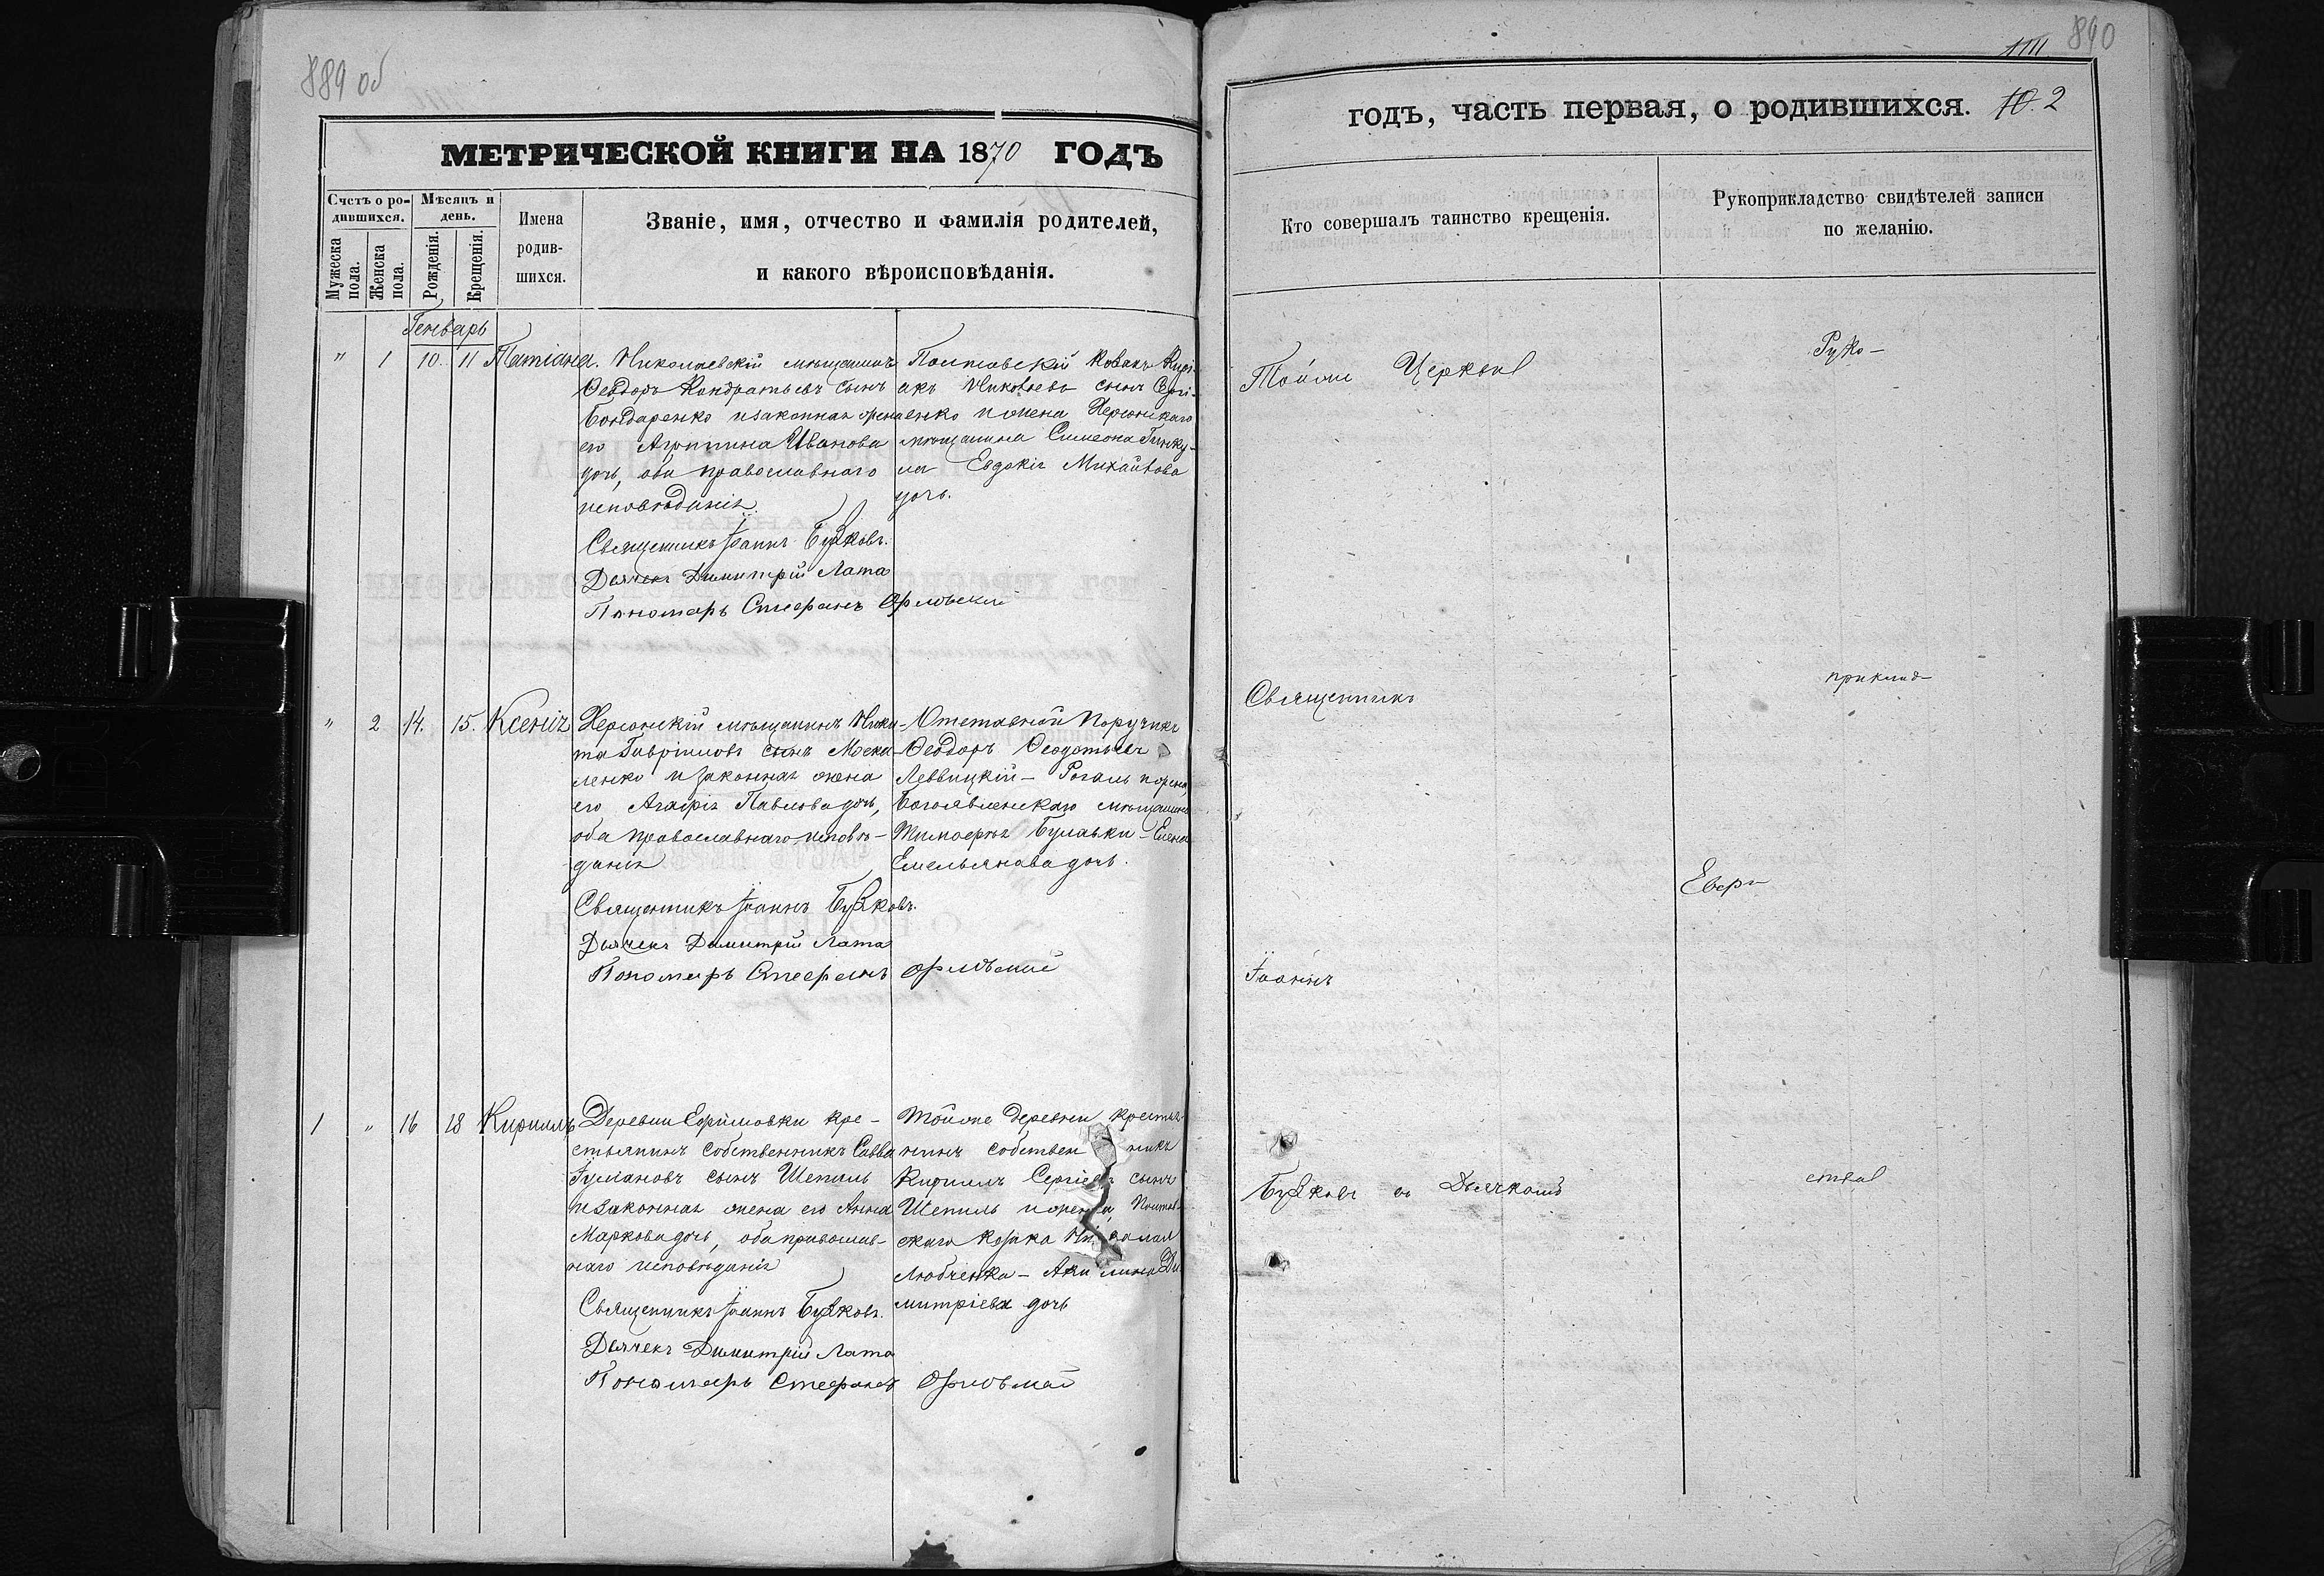 889 об
МЕТРИЧЕСКОЙ КНИГИ НА 1870 ГОДЪ
Счетъ о родившихся.
Мѣсяцъ и день.
Мужеска пола.
Женска пола.
Рожденія.
Крещенія.
Имена родившихся.
Званіе, имя, отчество и фамилія родителей,
и какого вѣроисповѣданія.
Генварь
" 1 10. 11 Татіана.
Николаевскій мѣщанинъ
Ѳеодоръ Кондратьевъ сынъ
Бондаренко и законная жена
его Агрипина Иванова
дочь, оба православнаго
исповѣданія.
Полтовскій Козакъ Кирі-
акъ Яковлевъ сынъ Сері-
енко и жена Херсонскаго
мѣщанина Симеона
Евдокія Михайлова
дочь.
Священникъ Іоаннъ Бужковъ.
Дьячекъ Димитрій Лата
Пономарь Стефанъ Орловскій
" 2 14. 15. Ксенія
Херсонскій мѣщанинъ Ники-
та Гавріиловъ сынъ Моска-
ленко и законная жена
его Агафія Павлова дочь,
оба православнаго исповѣ-
данія
Отставной Поручикъ
Ѳеодоръ Ѳеодотьевъ
Леввицкій - Рогаль и жена
Богоявленскаго мѣщанина
Тимофея Булавки - Елена
Емельянова дочь.
Священникъ Іоаннъ Бужковъ.
Дьячекъ Димитрій Лата
Пономарь Стефанъ Орловскій
1 " 16 18 Кириллъ
Деревни Ефимовки кре-
стьянинъ собственникъ Савва
Іуліановъ сынъ Шепиль
и законная жена его Анна
Маркова дочь, оба православ-
наго исповѣданія
Тойже деревни крестья-
нинъ собственникъ
Кириллъ Сергіевъ сынъ
Шепиль и жена, Полтав-
скаго козака
Любченка - Акилина Ди-
митріева дочь
Священникъ Іоаннъ Бужковъ.
Дьячекъ Димитрій Лата
Пономарь Стефанъ Орловскій
890
годъ, часть первая, о родившихся. 2
Кто совершалъ таинство крещенія.
Рукоприкладство свидѣтелей записи
по желанію.
Тойже Церкви
Руко-
Священникъ
приклад-
Іоаннъ
Бужковъ съ Дьячкомъ
ства